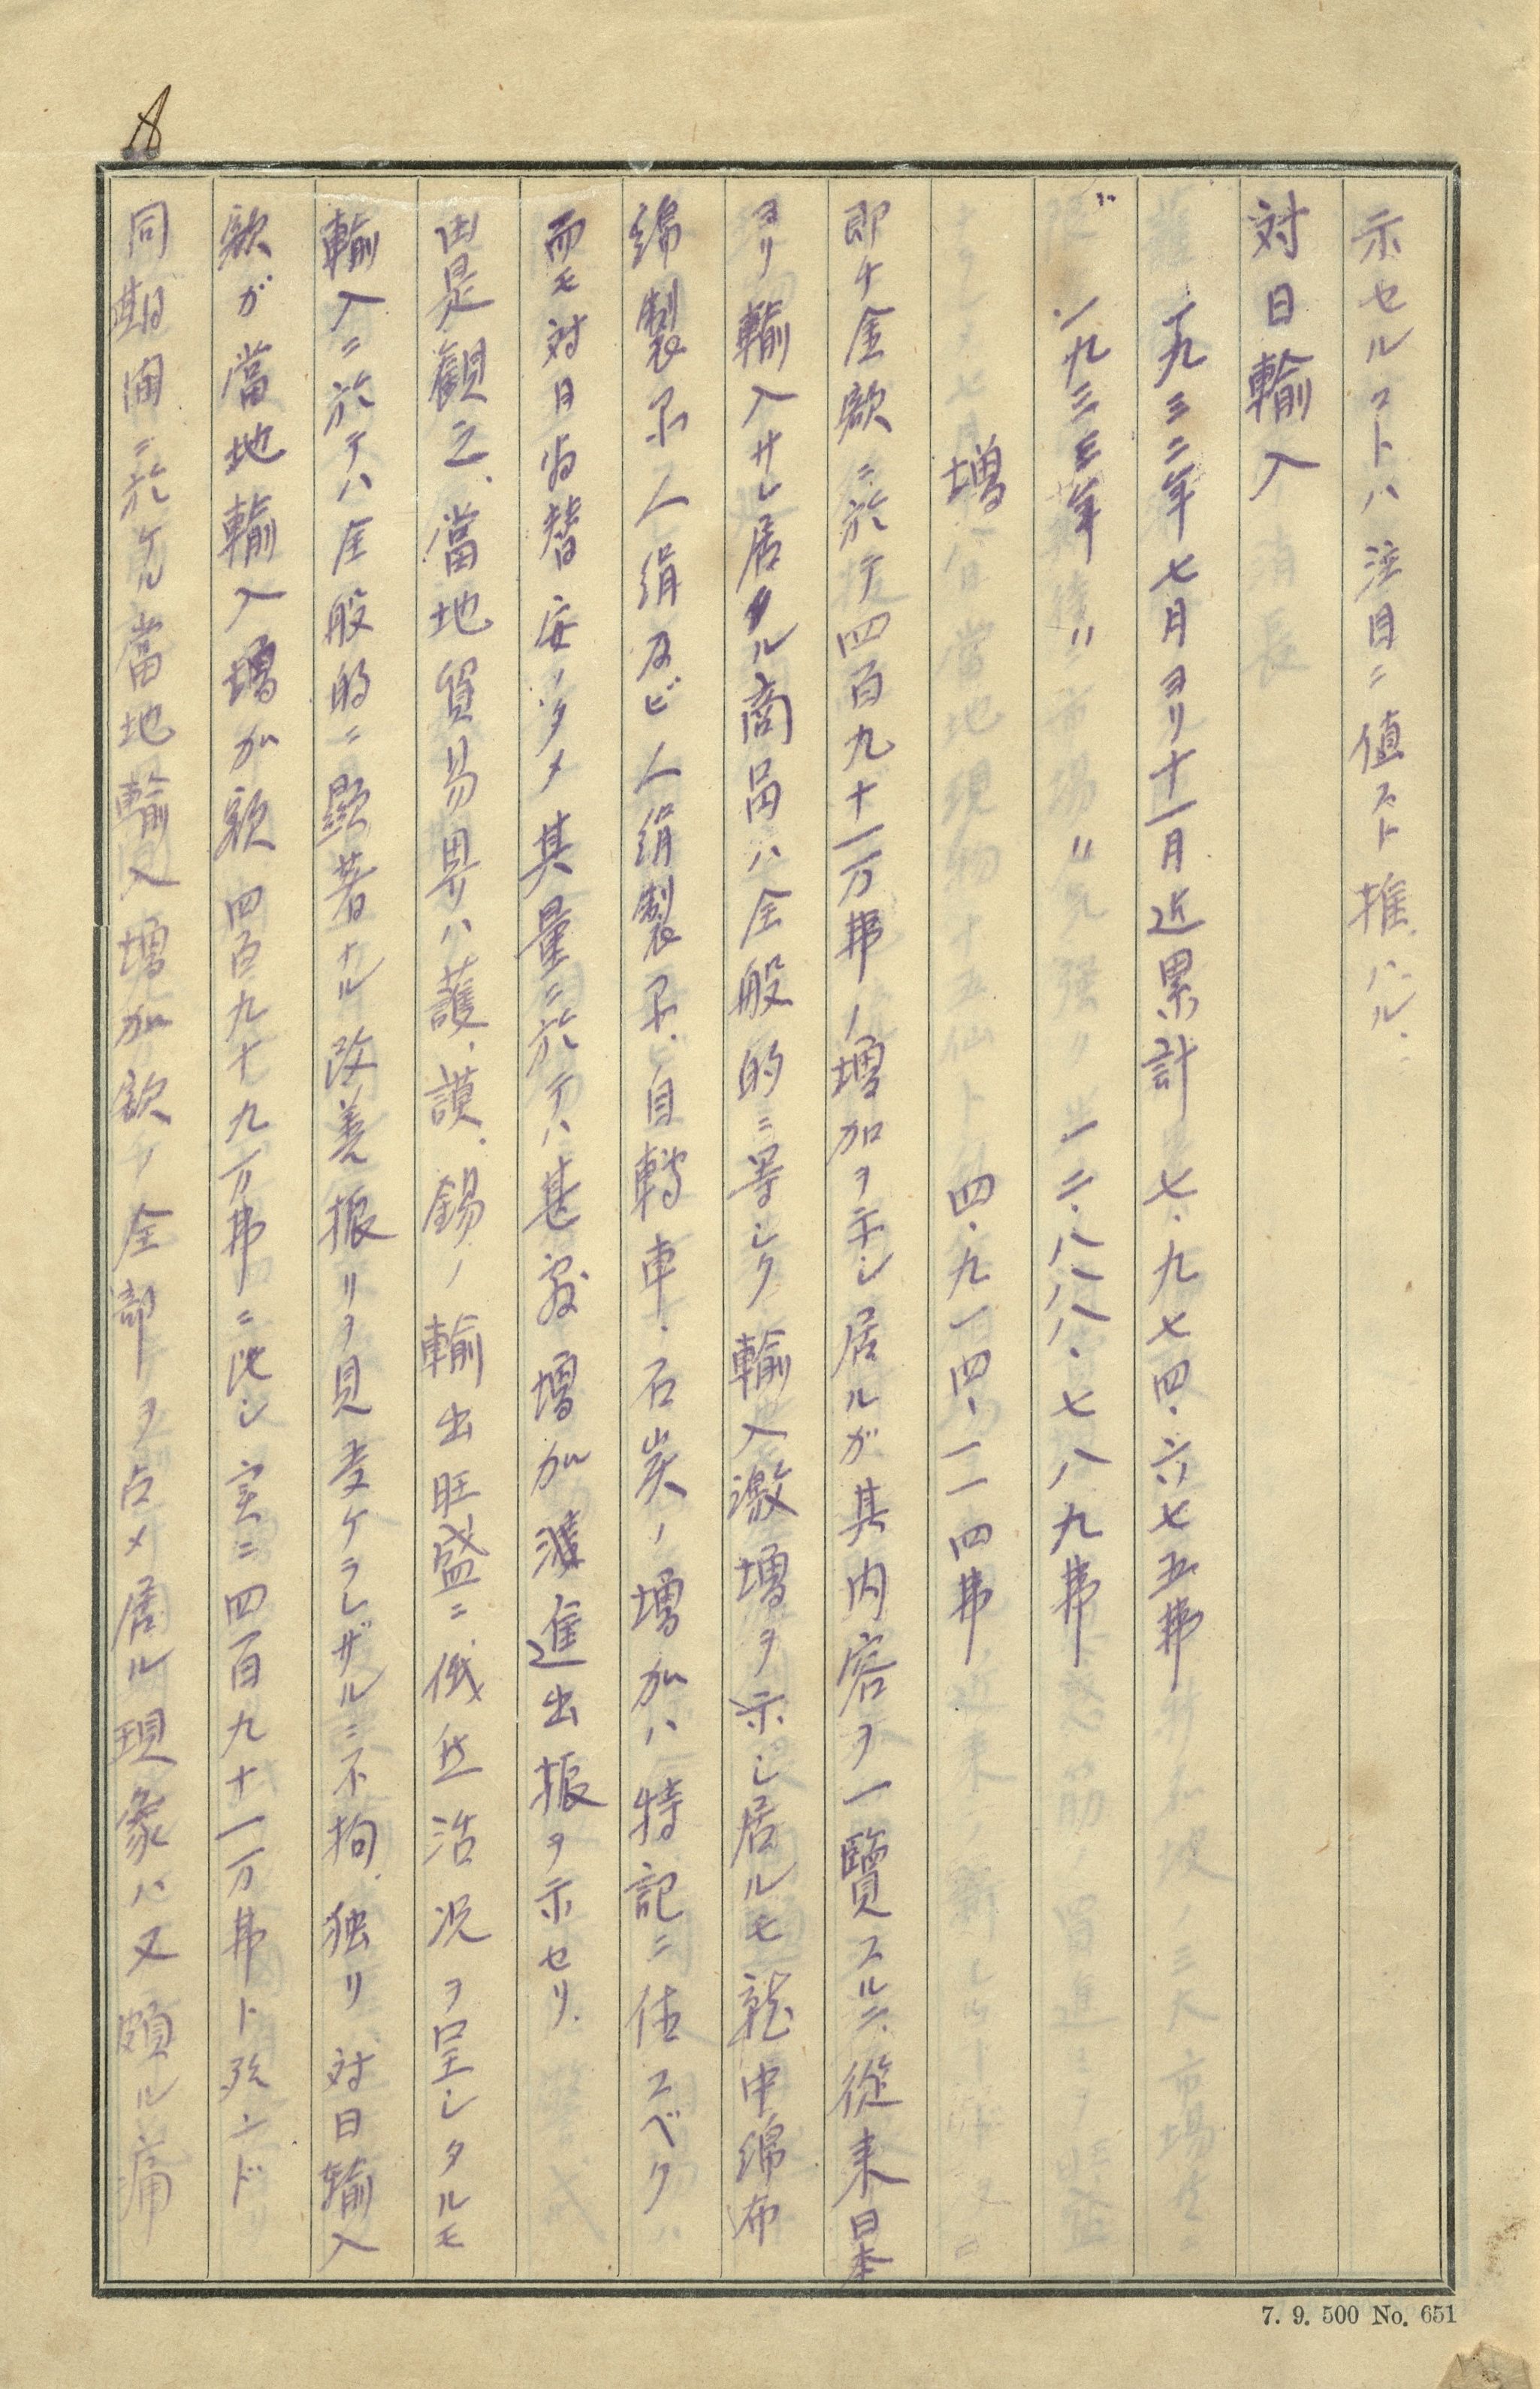 示セルコトハ注目ニ値スト推ハル、
対日輸入
一九三二年七月ヨリ十一月迄累計 七、九七四、六七五弗
一九三三年 〃 〃 一二、八八八、七八九弗
増 四、九一四、一一四弗
即チ金額ニ於テ四百九十一万弗ノ増加ヲ示シ居ルガ其内容ヲ一覽スルニ、從来日本
ヨリ輸入サレ居タル商品ハ全般的ニ等シク輸入激増ヲ示シ居ルモ就中綿布
綿製品、人絹及ビ人絹製品、自轉車、石炭ノ増加ハ特記ニ値スベク
而モ対日為替安ノタメ其量ニ於テハ甚敷増加躍進出振ヲ示セリ、
由是観之、當地貿易界ハ護謨、錫ノ輸出旺盛ニ依並活况ヲ呈シタルモ
輸入ニ於テハ全般的ニ顕著ナル改善振リヲ見受ケラレザルニ不拘、独リ対日輸入
額ガ當地輸入増加額四百九十九万弗ニ比シ実ニ四百九十一万弗ト殆ンド
同期間ニ於ケル當地輸入増加額ノ全部ヲ占メ居ル現象ハ又頗ル痛
7. 9. 500 No. 651